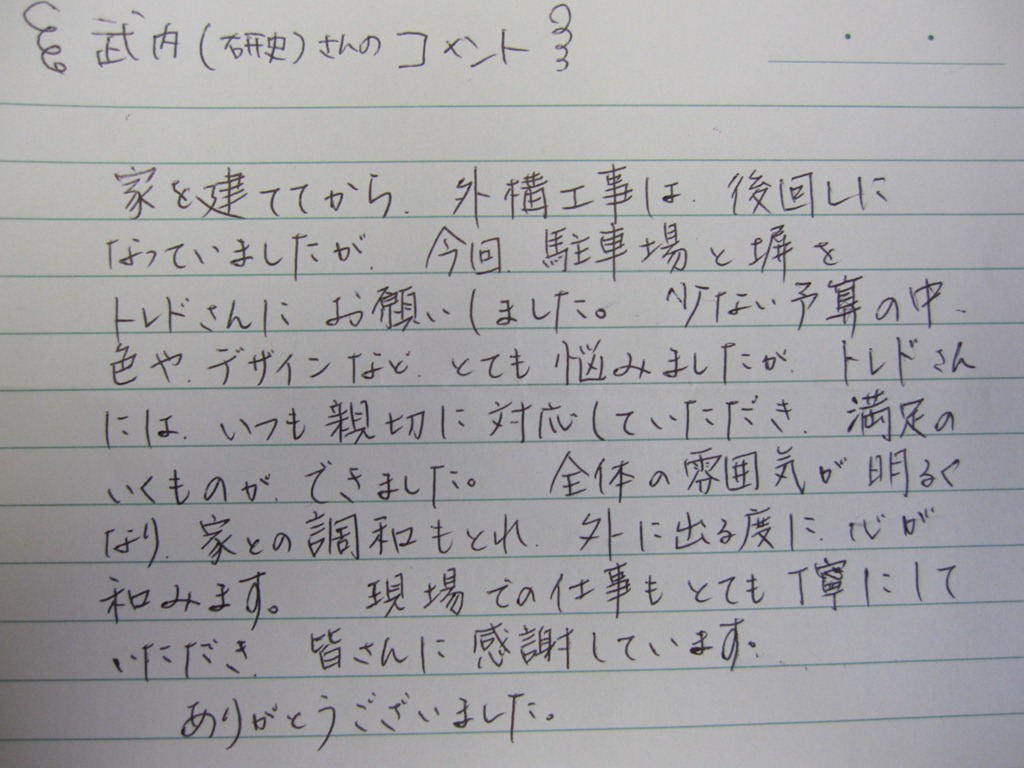 武内(研史)さんのコメント
家を建ててから、外構工事は、後回しに
なっていましたが、今回、駐車場と塀を
トレドさんにお願いしました。少ない予算の中、
色や、デザインなど、とても悩みましたが、トレドさん
には、いつも親切に対応していただだき、満足の
いくものが、できました。全体の雰囲気が明るく
なり、家との調和もとれ、外に出る度に、心が
和みます。現場での仕事もとても丁寧にして
いただだき、皆さんに感謝しています。
ありがとうございました。